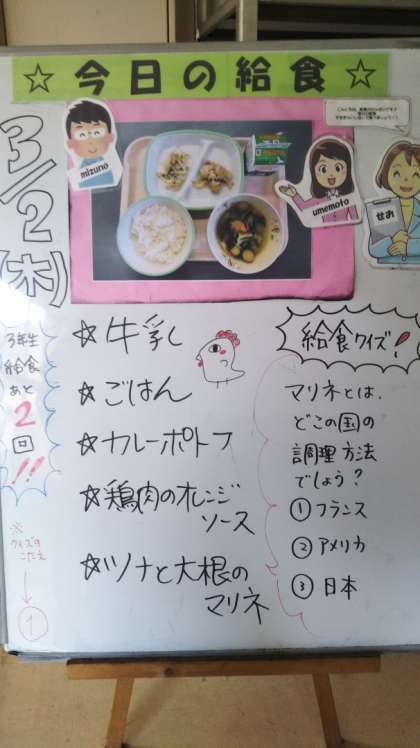 ☆今日の給食☆
3/2(木)
mizuno
umemoto
せお
3年生
給食
あと
2
回!!
☆牛乳
☆ごはん
☆カレーポトフ
☆鶏肉のオレンジ
ソース
☆ツナと大根の
マリネ
給食クイズ!
マリネとは、
どこの国の
調理方法
でしょう?
①フランス
②アメリカ
③日本
※
クイズの
こたえ
①